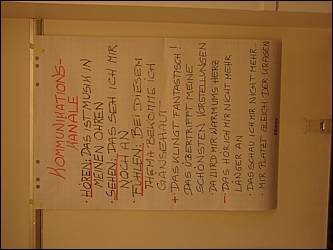 KOMMUNIKATIONS-
KANÄLE
• HÖREN: DAS IST MUSIK IN
MEINEN OHREN
• SEHEN: DAS SEH ICH MIR
NOCH AN
• FÜHLEN: BEI DIESEM
THEMA BEKOMME ICH
GÄNSEHAUT
+ DAS KLINGT FANTASTISCH!
DAS ÜBERTRIFFT MEINE
SCHÖNSTEN VORSTELLUNGEN
DA WIRD MIR WARM UMS HERZ
- DAS HÖR ICH MIR NICHT MEHR
LÄNGER AN
DAS SCHAU ICH MIR NICHT MEHR
MIR PLATZT GLEICH DER KRAGEN